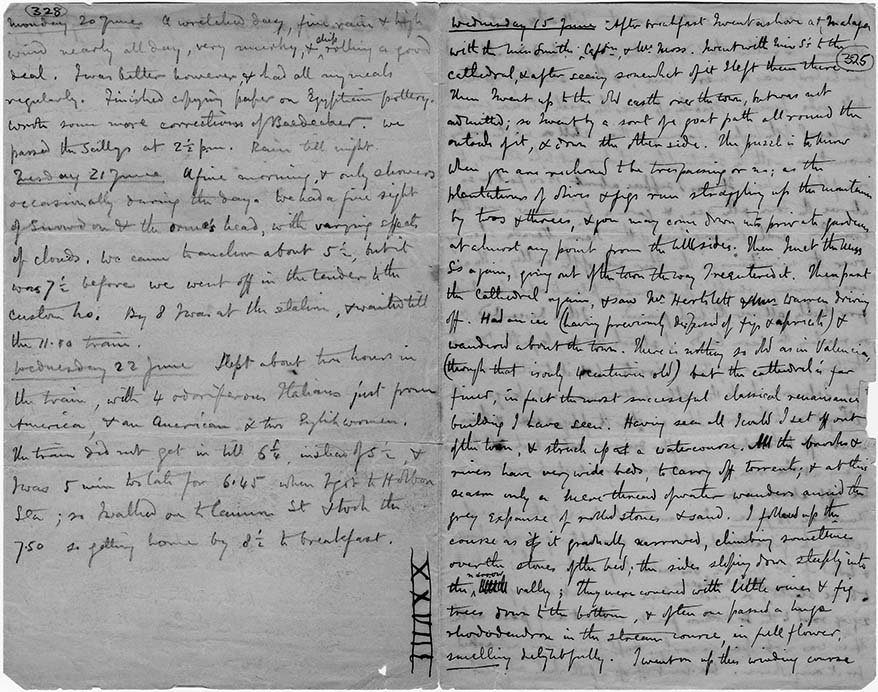 328
Monday 20 June A wretched day, fine rain & high
wind nearly all day, very murky, & ship rolling a good
deal. I was better however & had all my meals
regularly. Finished copying paper on Egyptian pottery.
Wrote some more corrections of Baedecker. We
passed the Scillys at 2½ p.m. Rain till night.
Tuesday 21 June A fine morning, & only showers
occasionally during the day. We had a fine sight
of Snowdon & the Orme's head, with varying effects
of clouds. We came to anchor about 5½, but it
was 7½ before we went off in the tender to the
custom ho. By 8 I was at the station, & waited till
the 11.00 train.
Wednesday 22 June Slept about two hours in
the train, with 4 odoriferous Italians just from
America, & an American, & two Englishwomen.
The train did not get in till 6¼, instead of 5½, &
I was 5 min too late for 6.45 when I got to Holborn
; so I walked on to Cannon St & took the
7.50 so getting home by 8½ to breakfast.
XXVIII
Wednesday 15 June After breakfast I went ashore at Malaga
with the Miss Smiths, Captn, & Mr Moss. I went with Miss S's to the
325
cathedral, & after seeing somewhat of it I left them there.
Then I went up to the old castle over the town, but was not
admitted; so I went by a sort of goat path all round the
outside of it, & down the other side. The puzzle is to know
when you are reckoned to be trespassing or no; as the
plantations of olives & figs run straggling up the mountain
by twos & threes, & you may come down into private gardens
at almost any point from the hillsides. Then I met the Miss
S's again, going out of the town the way I reentered it. Then past
the Cathedral again, & saw Mr & Miss Warren driving
off. Had an ice (having previously disposed of figs & apricots) &
wandered about the town. There is nothing so old as in Valencia,
(though that is only 4 centuries old) but the cathedral is far
finer, in fact the most successful classical renaissance
building I have seen. Having seen all I could I set off out
of the town, & struck up at a watercourse. All the brooks &
rivers have very wide beds, to carry off torrents, & at this
season only a mere thread of water wanders amid the
grey expanse of rolled stones & sand. I followed up the
course as it gradually narrowed, climbing sometimes
over the stones of the bed; the sides sloping down steeply into
the narrow valley; they were covered with little vines & fig
trees down to the bottom, & often one passed a huge
rhododendron in the stream course, in full flower,
smelling delightfully. I went on up this winding course